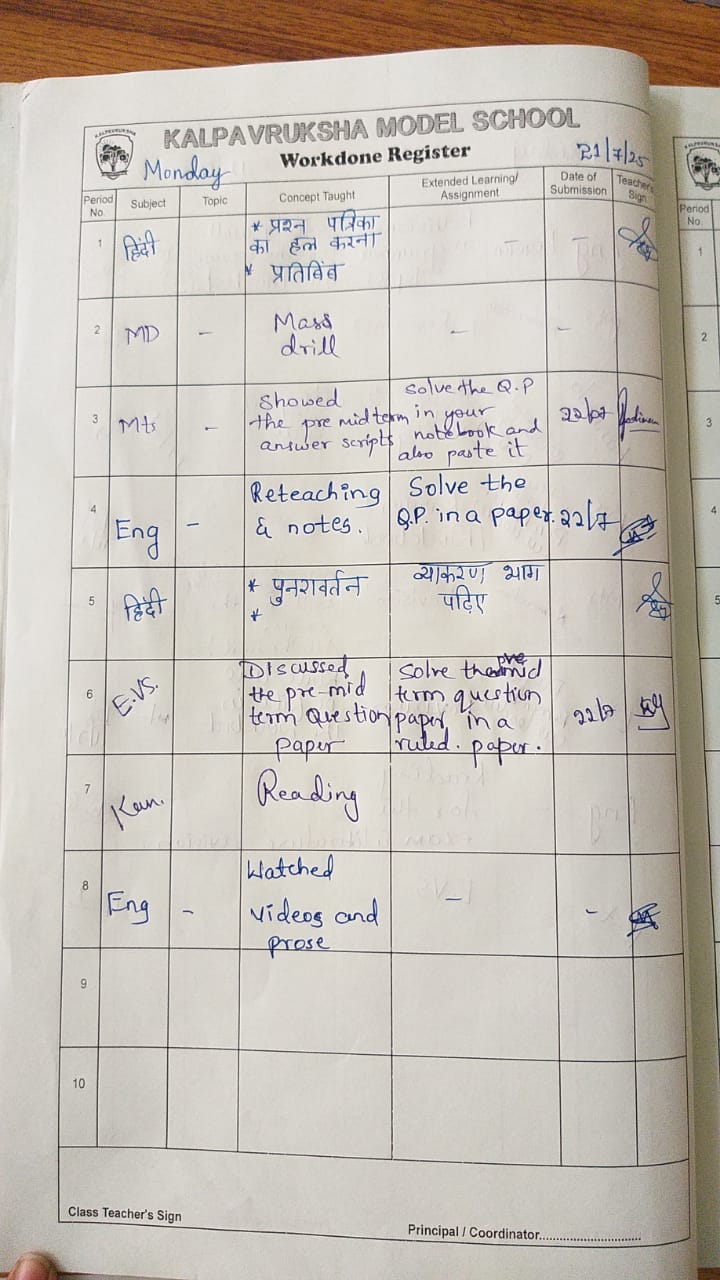 KALPAVRUKSHA
KALPAVRUKSHA MODEL SCHOOL
Monday
Workdone Register
21/7/25
Period No. Subject Topic Concept Taught Extended Learning/ Assignment Date of Submission Teacher's Sign
1 हिंदी * प्रश्न पत्रिका
का हल करना - -
* प्रतिबिंब
2 MD - Mass
drill - -
3 Mts - Showed solve the Q.P 22/07
the pre midterm in your
answer scripts notebook and
also paste it
4 Eng - Reteaching Solve the
& notes. Q.P. in a paper. 22/7
5 हिंदी * पुनरावर्तन व्याकरण भाग
* पढ़िए
6 E.VS. Discussed Solve the pre mid
the pre-mid term question 22/7
term Question paper in a
paper ruled. paper.
7 Kan. Reading
8 Eng - Watched - -
videos and
prose
9
10
Class Teacher's Sign
Principal / Coordinator..............................
Period No.
1
2
3
4
5